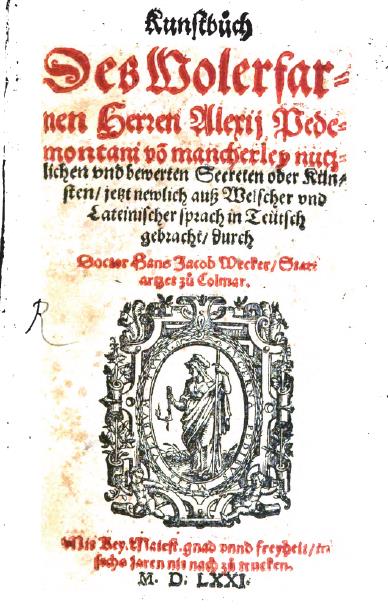 Kunstbůch
Des Wolerfar-
nen Herren Alexij Pede-
montani võ mancherley nutz-
lichen vnd bewerten Secreten oder Kün-
sten / jetzt newlich auß Welscher vnd
Lateinischer sprach in Teütsch
gebracht / durch
Doctor Hans Jacob Wecker / Statt
artzet zů Colmar.
R
Mit Key. Maiest. gnad vnnd freyheit / in
sechs Jaren nit nach zů trucken.
M. D. LXXI.